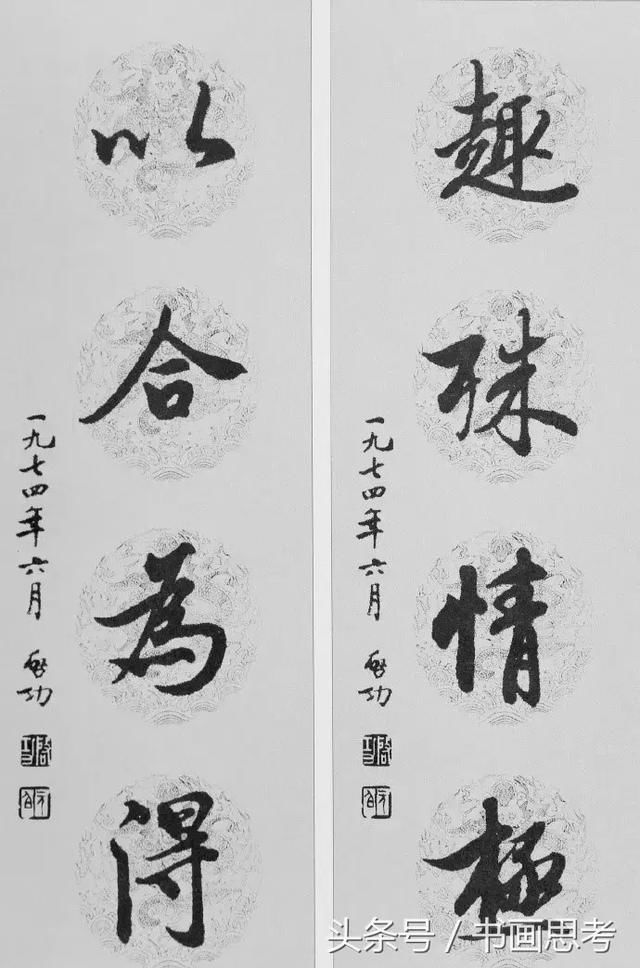 趣殊情極
一九七四年六月 启功
以合為得
一九七四年六月 启功
头条号 / 书画思考